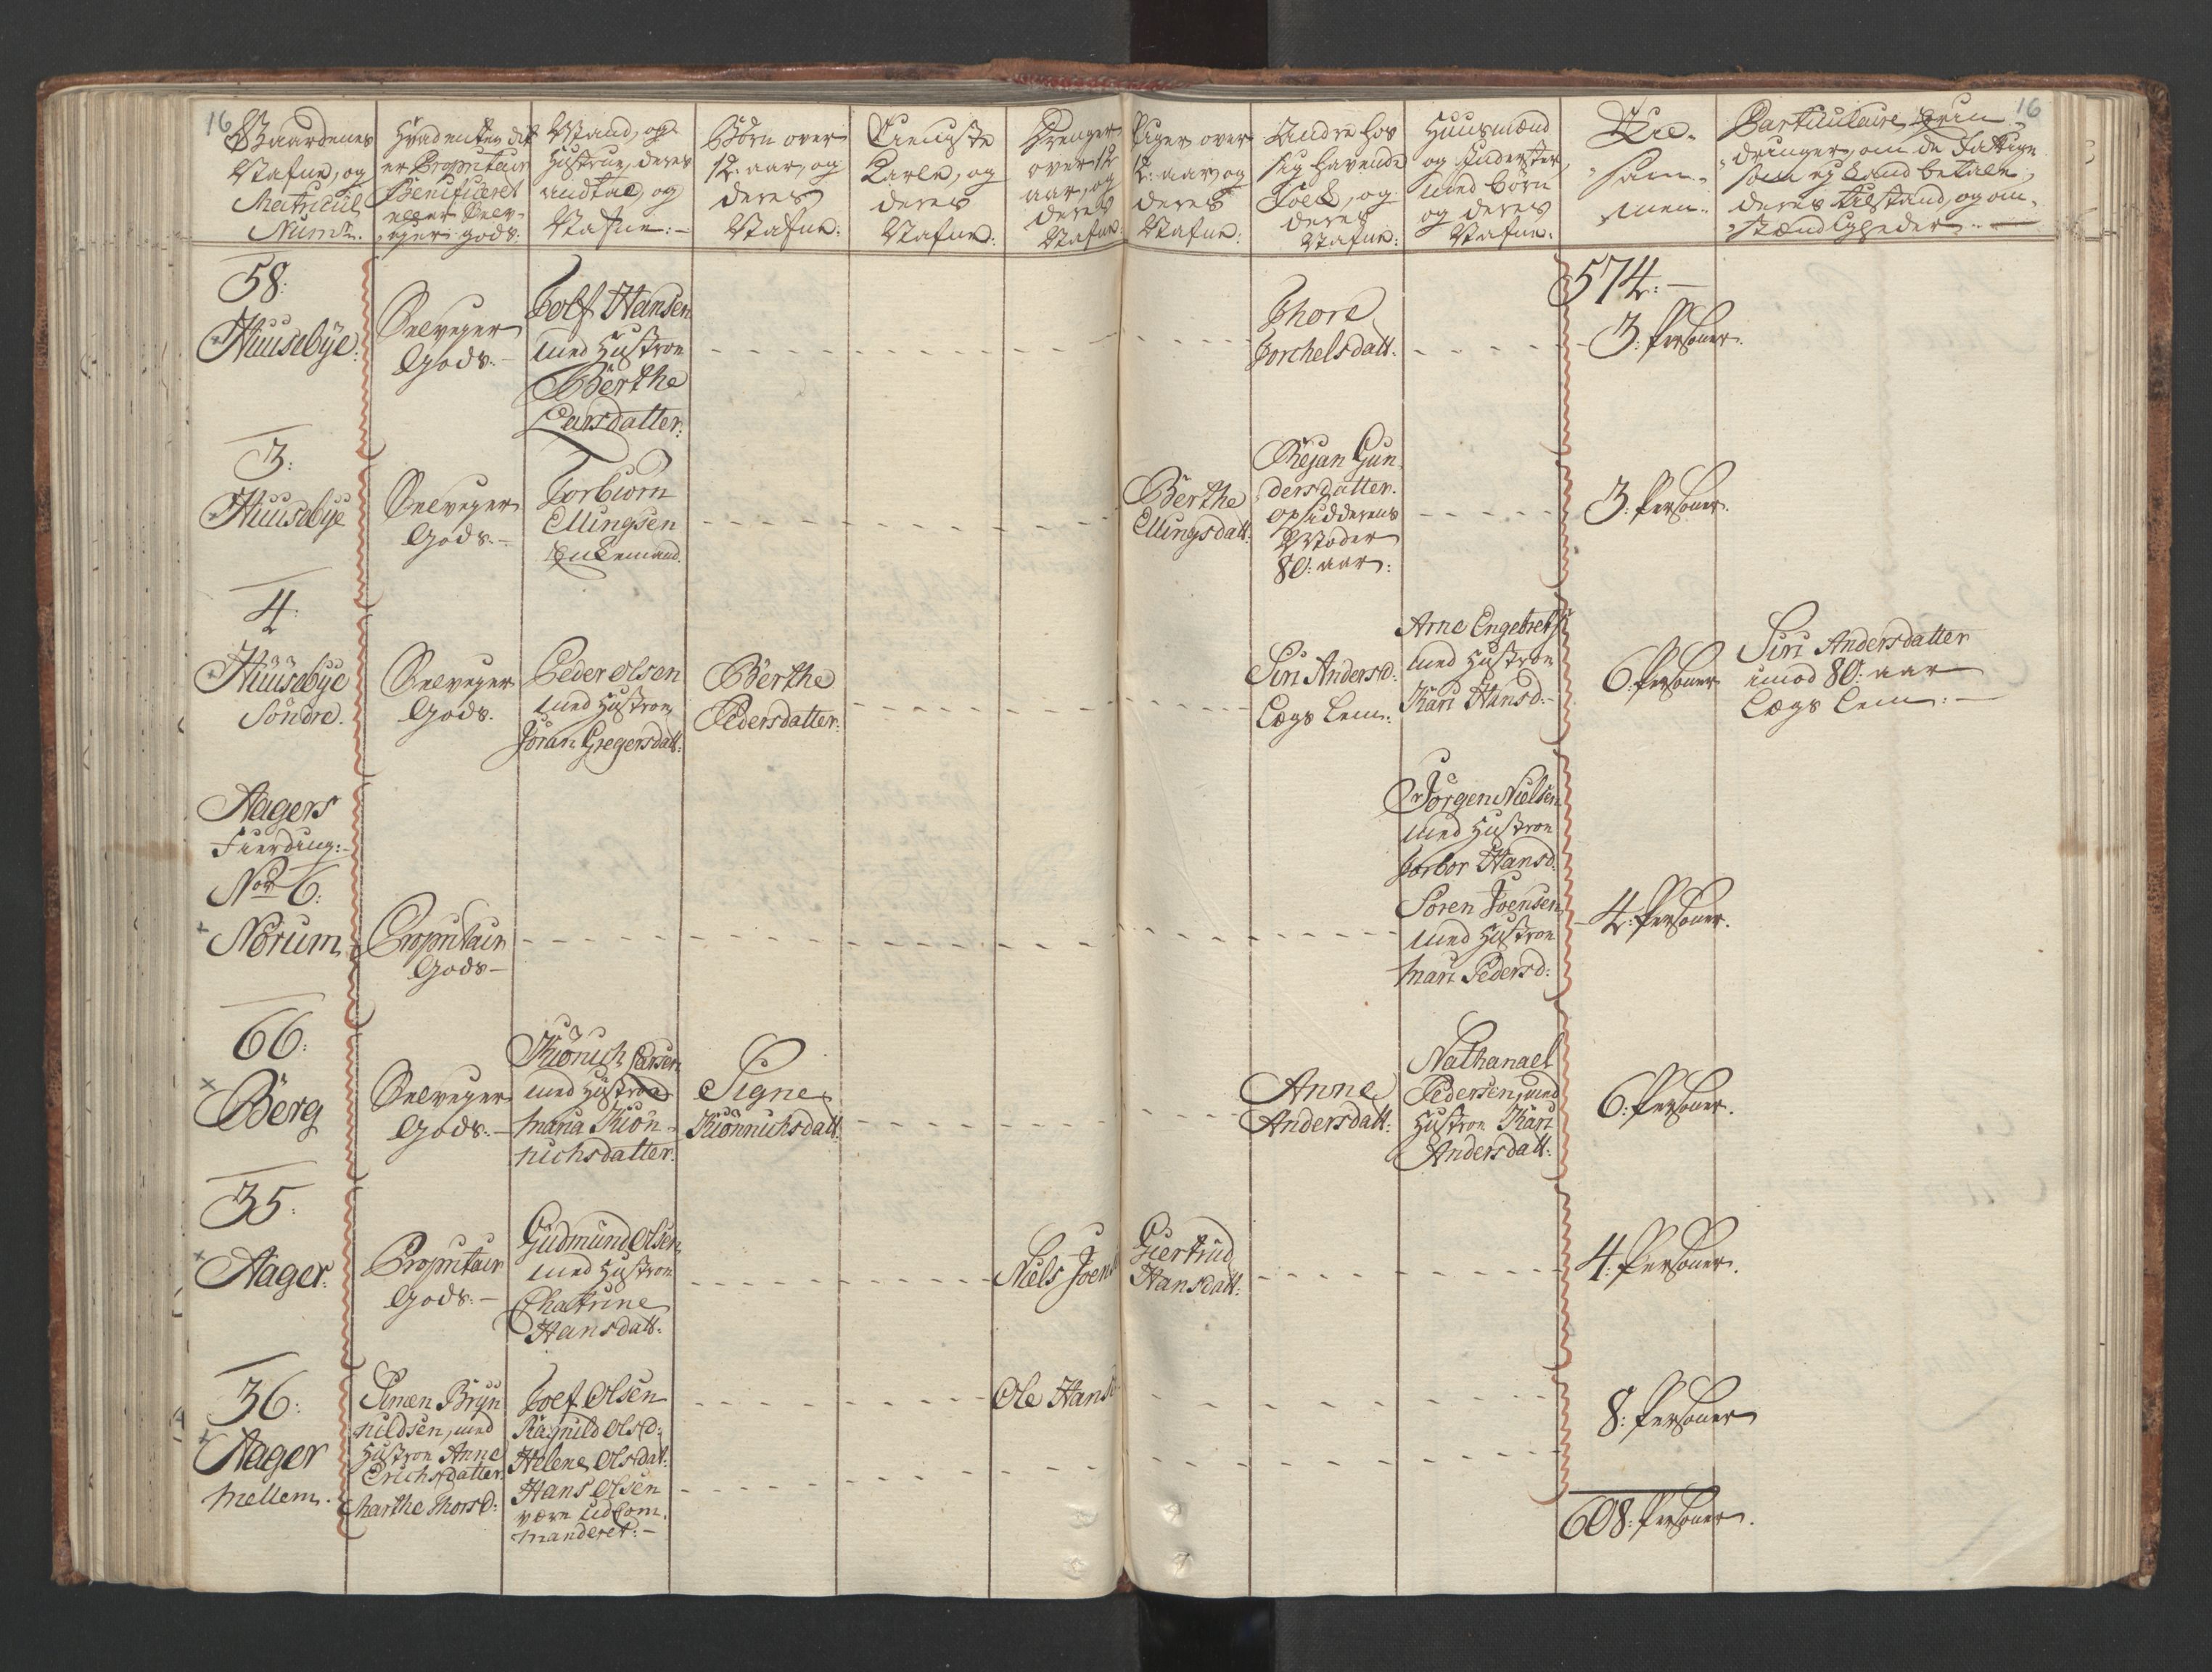 16
Gaardenes
Nafne, og
Matricul
Num:
Hvad enten det
er Propritair
Benificeret
eller Selv-
ejer gods:
Mand, og
Hustrue, deres
andtal, og
Nafne:-
Börn over
12: aar, og
deres
Nafne:
Tieniste
Karle, og
deres
Nafne:
Drenger
over 12
aar, og
deres
Nafne:
Piger over
12: aar, og
deres
Nafne:
Andre hos
sig havende
Folk, og
deres
Nafne:
Huusmænd
og Inderster,
med börn
og deres
Nafne:
Til-
sam-
men:
Particulaire Erin-
dringer, om de Fattige
som ej kand betale,
deres tilstand, og om-
stændligheder.
16
58:
Huusebÿe:
Selvejer
Gods.-
Tolf Hansen
med Hustroe
Berthe
Larsdatter:
Thore
Torchelsdatt:
574:-
3: Personer.
3:
Huusebÿe
Selvejer
Gods.-
Torbiorn
Ellingsen
Enkemand.
Berthe
Ellingsdatt:
Rejan Gun
dersdatter.
opsidderens
Moder
80: aar:
3: Personer.
4:
Huusebÿe
Söndre.
Selvejer
Gods.
Peder Olsen
med Hustroe
Jöran Gregersdatt:
Berthe
Pedersdatter:
Siri Andersd:
Lægs Lem:
Arne Engebrets:
med Hustroe
Kari Hansd:-
6: Personer
Siri Andersdatter
imod 80: aar
Lægs Lem:-
Aagers
Fierding:-
No 6:
Nörum
Propritair
Gods-
Jörgen Nielsen
med Hustroe
Torbor Hansd:
Sören Joensen
med Hustroe
Mari Pedersd:
4: Personer.
66:
Berg
Selvejer
Gods.-
Kiönich Larsen
med Hustroe
Maria Kiön-
nichsdatter.
Signe
Kiönnichsdatt:
Anne
Andersdatt:
Nathanael
Pedersen, med
Hustroe Kari
Andersdatt:
6: Personer.
35:
Aager.
Propritair
Gods:-
Gudmund Olsen
med Hustroe
Chatrine
Hansdatt:
Niels Joens
Giertrud
Hansdatt:
4: Personer.
36:
Aager
Mellem.
Simen Bryn
hildsen, med
Hustroe Anne
Erichsdatter
Marthe Thorsd:
Tolf Olsen
Ragnild Olsd:
Helene Olsdat:
Hans Olsen
være udCom-
manderet:-
Ole Hans
8: Personer
608: Personer.